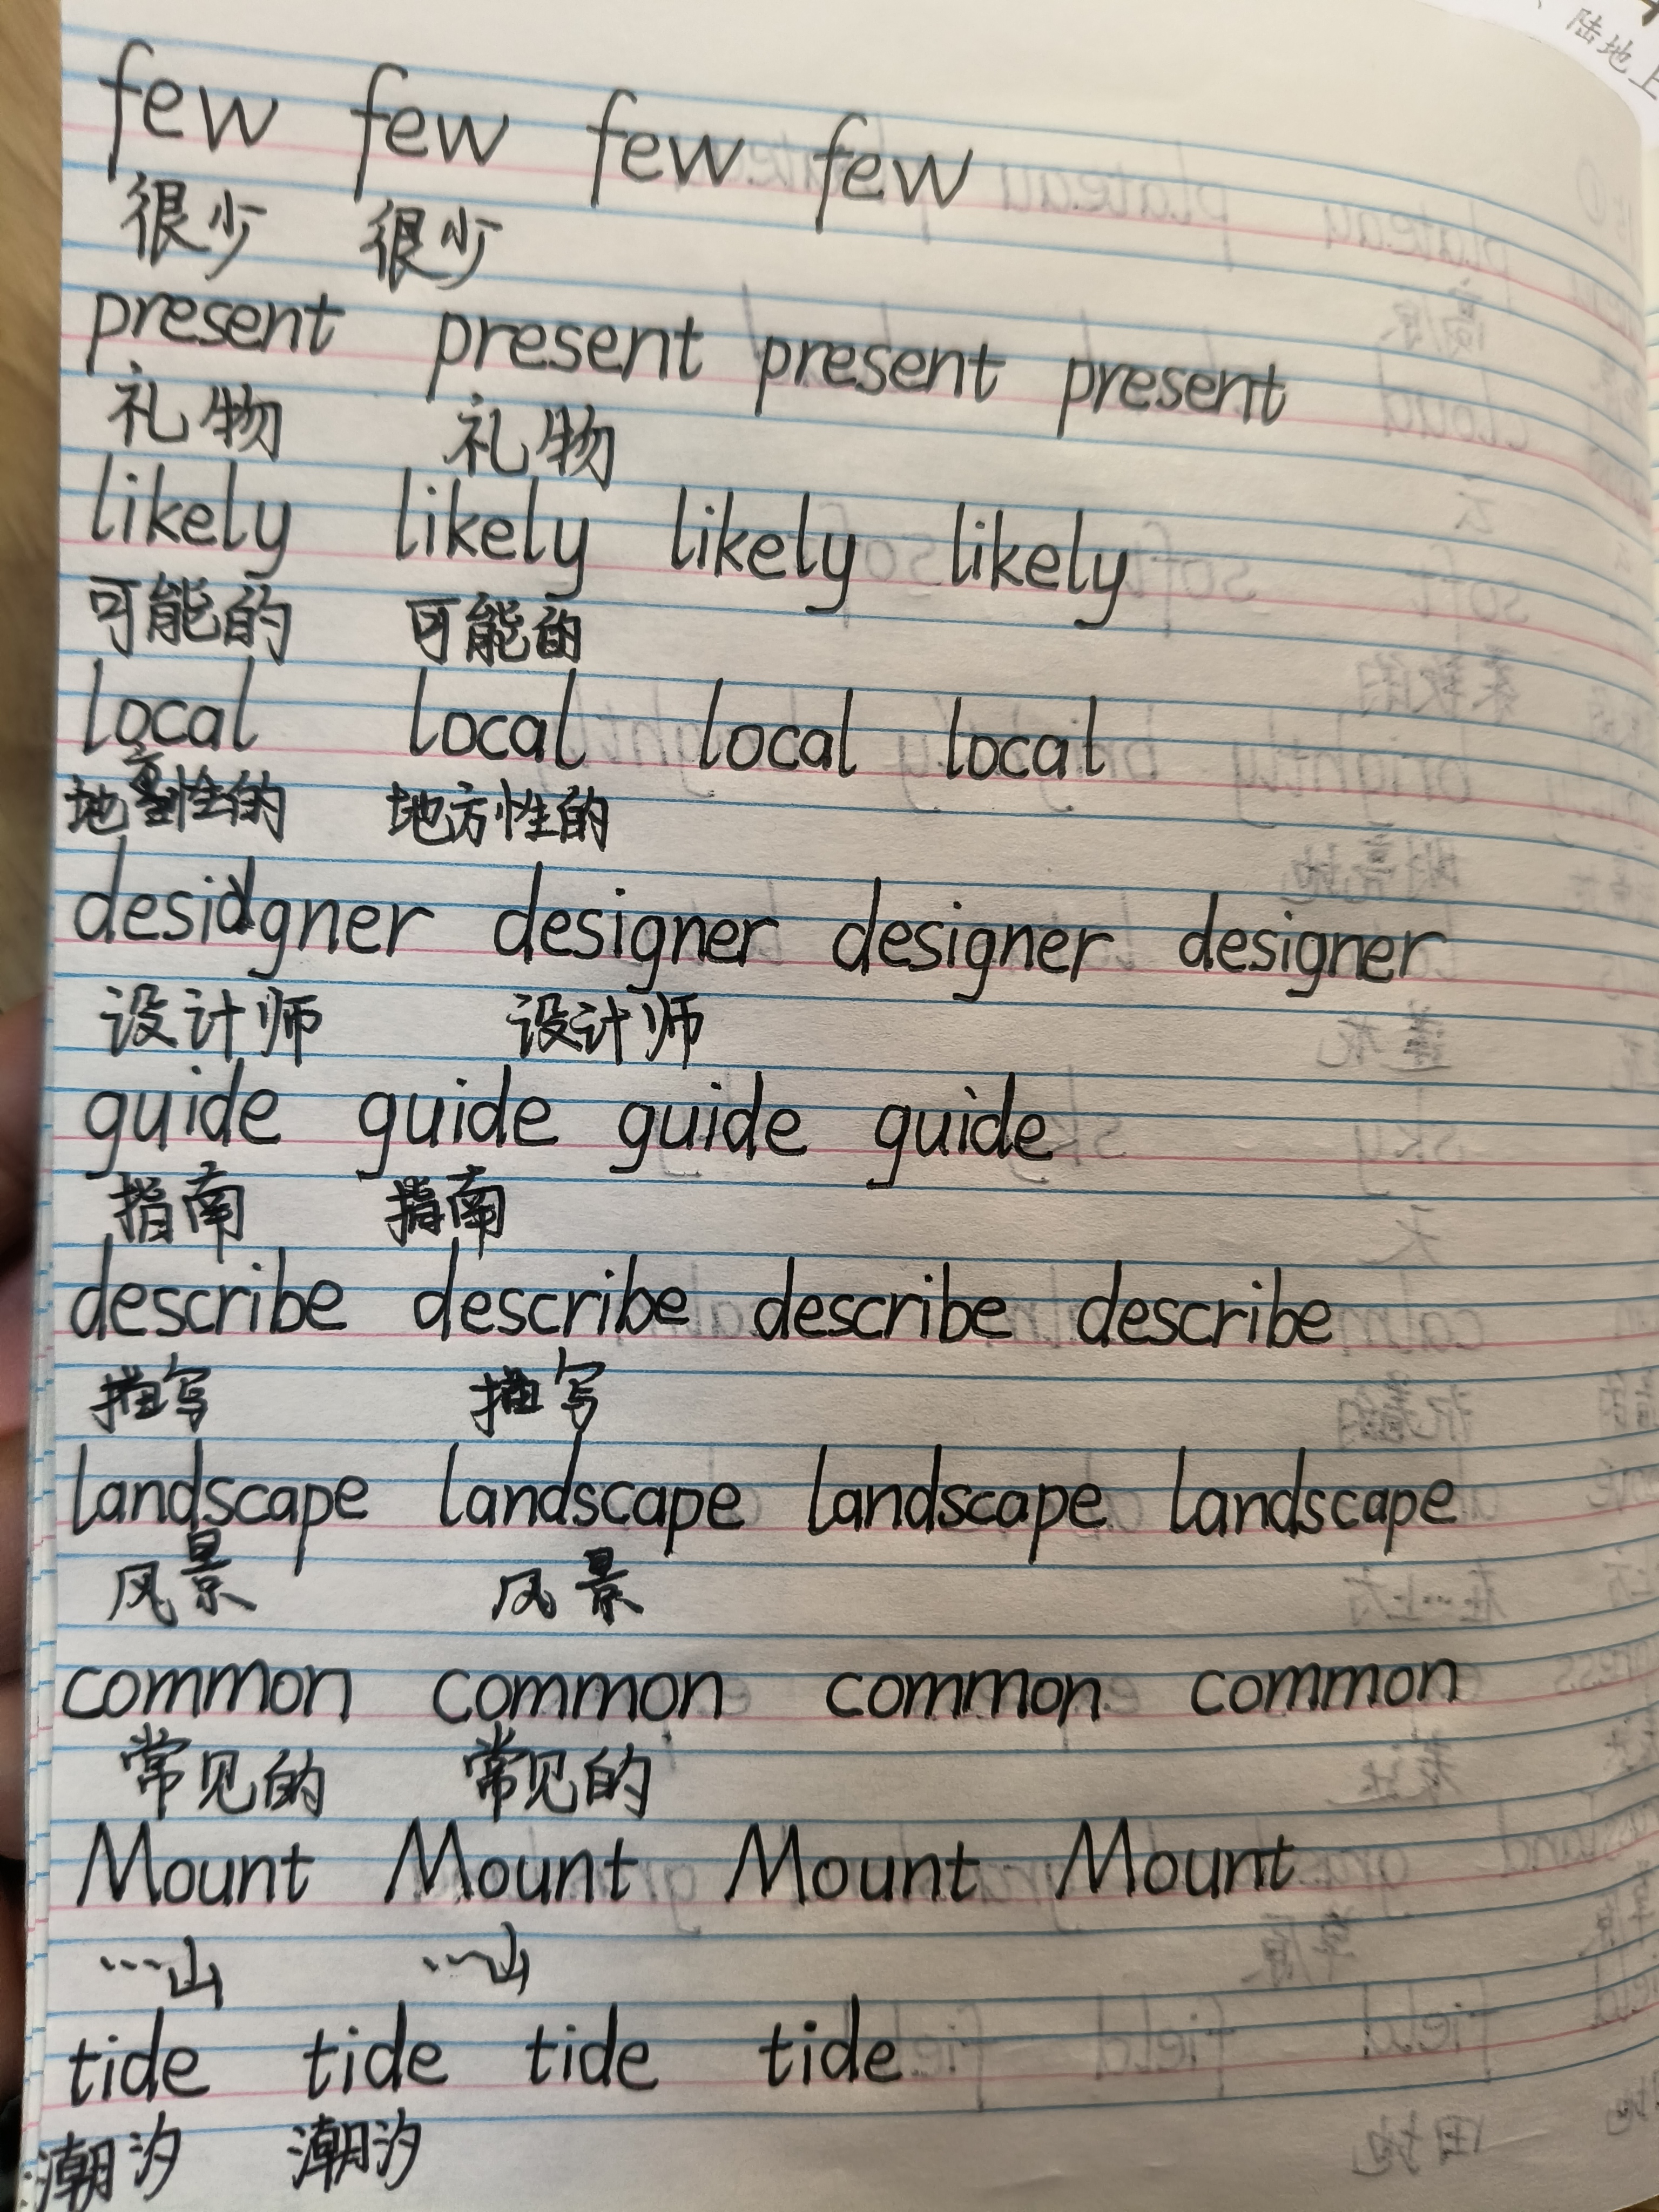 陆地上
few few few few
很少 很少
present present present present
礼物 礼物
likely likely likely likely
可能的 可能的
local local local local
地方性的 地方性的
designer designer designer
设计师 设计师
guide guide guide guide
指南 指南
describe describe describe describe
描写 描写
landscape landscape landscape landscape
风景 风景
common common common common
常见的 常见的
Mount Mount Mount Mount
…山 …山
tide tide tide tide
潮汐 潮汐